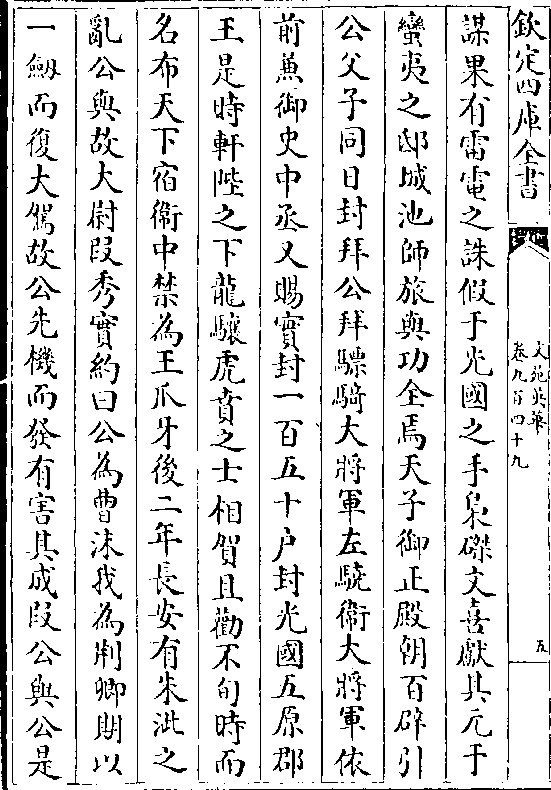 欽定四庫全書
文苑英華
卷九百四十九
五
謀果有雷電之誅假于光國之手梟磔文喜獻其元于
蠻夷之邸城池師旅與功全焉天子御正殿朝百辟引
公父子同日封拜公拜驃騎大將軍左驍衛大將軍依
前兼御史中丞又賜實封一百五十户封光國五原郡
王是時軒陛之下龍驤虎賁之士相賀且勸不旬時而
名布天下宿衞中禁為王爪牙後二年長安有朱泚之
亂公與故大尉段秀實約曰公為曹沬我為荆卿期以
一劒而復大駕故公先機而發有害其成段公與公是